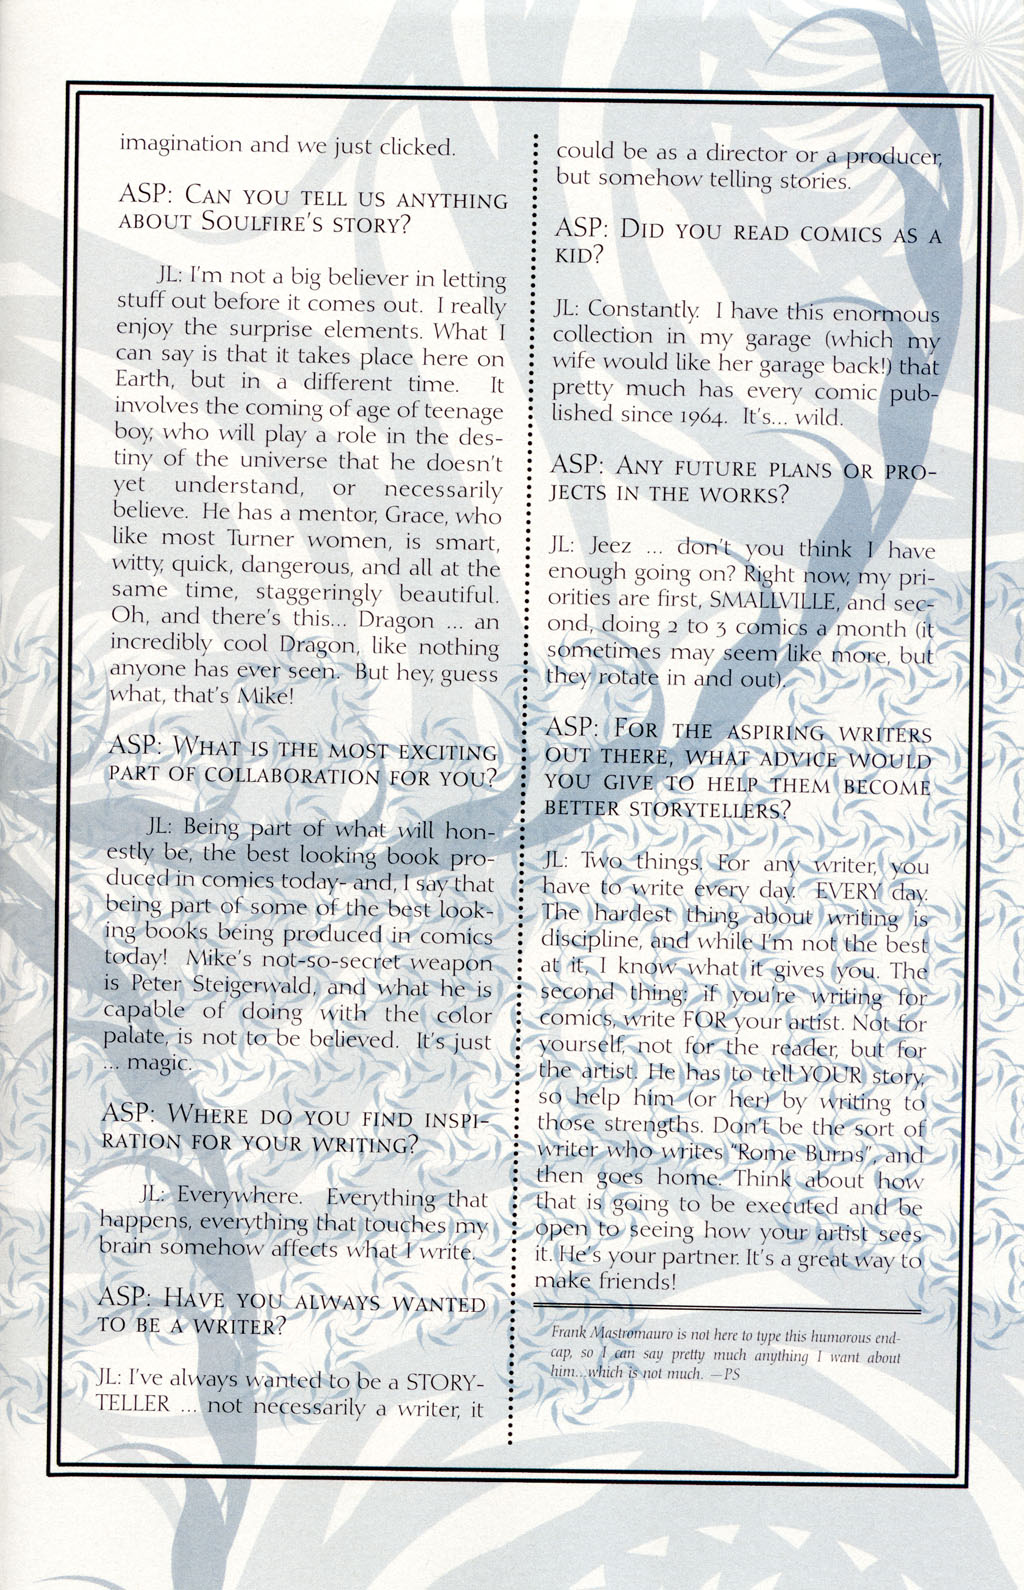 imagination and we just clicked.
ASP: CAN YOU TELL US ANYTHING
ABOUT SOULFIRE'S STORY?
JL: I'm not a big believer in letting
stuff out before it comes out. I really
enjoy the surprise elements. What I
can say is that it takes place here on
Earth, but in a different time. It
involves the coming of age of teenage
boy, who will play a role in the des-
tiny of the universe that he doesn't
yet understand, or necessarily
believe. He has a mentor, Grace, who
like most Turner women, is smart,
witty, quick, dangerous, and all at the
same time, staggeringly beautiful.
Oh, and there's this... Dragon ... an
incredibly cool Dragon, like nothing
anyone has ever seen. But hey, guess
what, that's Mike!
ASP: WHAT IS THE MOST EXCITING
PART OF COLLABORATION FOR YOU?
JL: Being part of what will hon-
estly be, the best looking book pro-
duced in comics today- and, I say that
being part of some of the best look-
ing books being produced in comics
today! Mike's not-so-secret weapon
is Peter Steigerwald, and what he is
capable of doing with the color
palate, is not to be believed. It's just
... magic.
ASP: WHERE DO YOU FIND INSPI-
RATION FOR YOUR WRITING?
JL: Everywhere. Everything that
happens, everything that touches my
brain somehow affects what I write.
ASP: HAVE YOU ALWAYS WANTED
TO BE A WRITER?
JL: I've always wanted to be a STORY-
TELLER ... not necessarily a writer, it
could be as a director or a producer,
but somehow telling stories.
ASP: DID YOU READ COMICS AS A
KID?
JL: Constantly. I have this enormous
collection in my garage (which my
wife would like her garage back!) that
pretty much has every comic pub-
lished since 1964. It's... wild.
ASP: ANY FUTURE PLANS OR PRO-
JECTS IN THE WORKS?
JL: Jeez ... don't you think I have
enough going on? Right now, my pri-
orities are first, SMALLVILLE, and sec-
ond, doing 2 to 3 comics a month (it
sometimes may seem like more, but
they rotate in and out).
ASP: FOR THE ASPIRING WRITERS
OUT THERE, WHAT ADVICE WOULD
YOU GIVE TO HELP THEM BECOME
BETTER STORYTELLERS?
JL: Two things. For any writer, you
have to write every day. EVERY day.
The hardest thing about writing is
discipline, and while I'm not the best
at it, I know what it gives you. The
second thing; if you're writing for
comics, write FOR your artist. Not for
yourself, not for the reader, but for
the artist. He has to tell YOUR story,
so help him (or her) by writing to
those strengths. Don't be the sort of
writer who writes "Rome Burns", and
then goes home. Think about how
that is going to be executed and be
open to seeing how your artist sees
it. He's your partner. It's a great way to
make friends!
Frank Mastromauro is not here to type this humorous end-
cap, so I can say pretty much anything I want about
him...which is not much. —PS